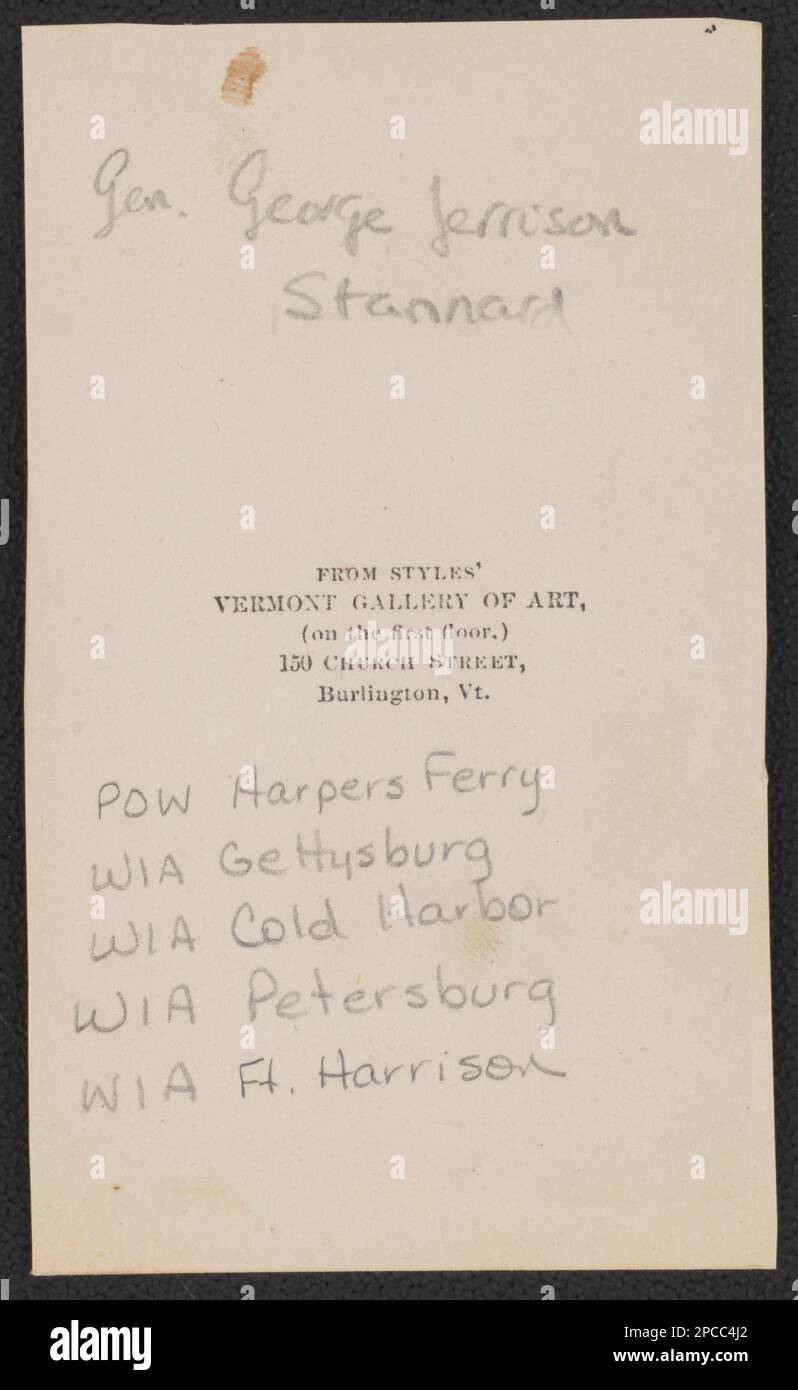 Gen. George Jerrison
Stannard
FROM STYLES'
VERMONT GALLERY OF ART,
(on the first floor.)
150 CHURCH STREET,
Burlington, Vt.
POW Harpers Ferry
WIA Gettysburg
WIA Cold Harbor
WIA Petersburg
WIA Ft. Harrison
alamy
alamy
alamy
Image ID: 2PCC4J2
www.alamy.com